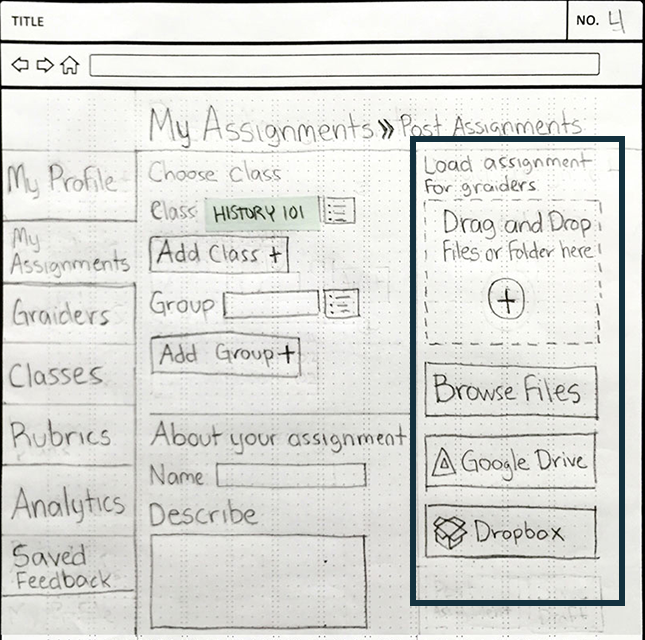 TITLE
NO. 4
My Assignments » Post Assignments
My Profile
My
Assignments
Graiders
Classes
Rubrics
Analytics
Saved
Feedback
Choose Class
Class HISTORY 101
Add Class +
Group
Add Group +
About your assignment
Name
Describe
Load assignment
for graiders
Drag and Drop
Files or Folder here
+
Browse Files
Google Drive
Dropbox